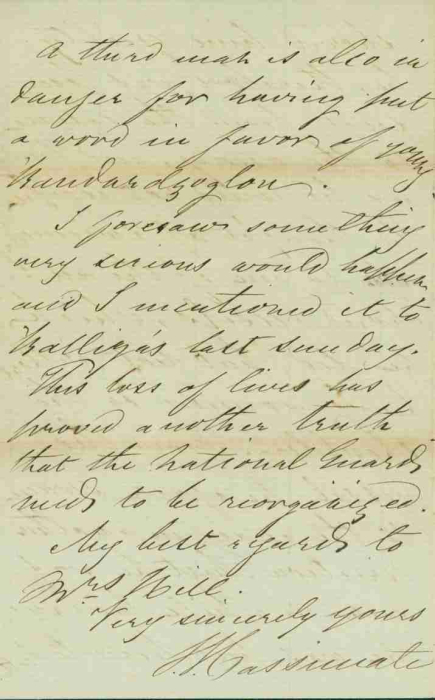 A third man is also in
danger for having put
a word in favor of young
I foresaw something
very serious would happen
and I mentioned it to
last sunday.
This loss of lives has
proved another truth
that the National Guards
needs to be reorganized.
My best regards to
Mrs Hill.
Very sincerely yours